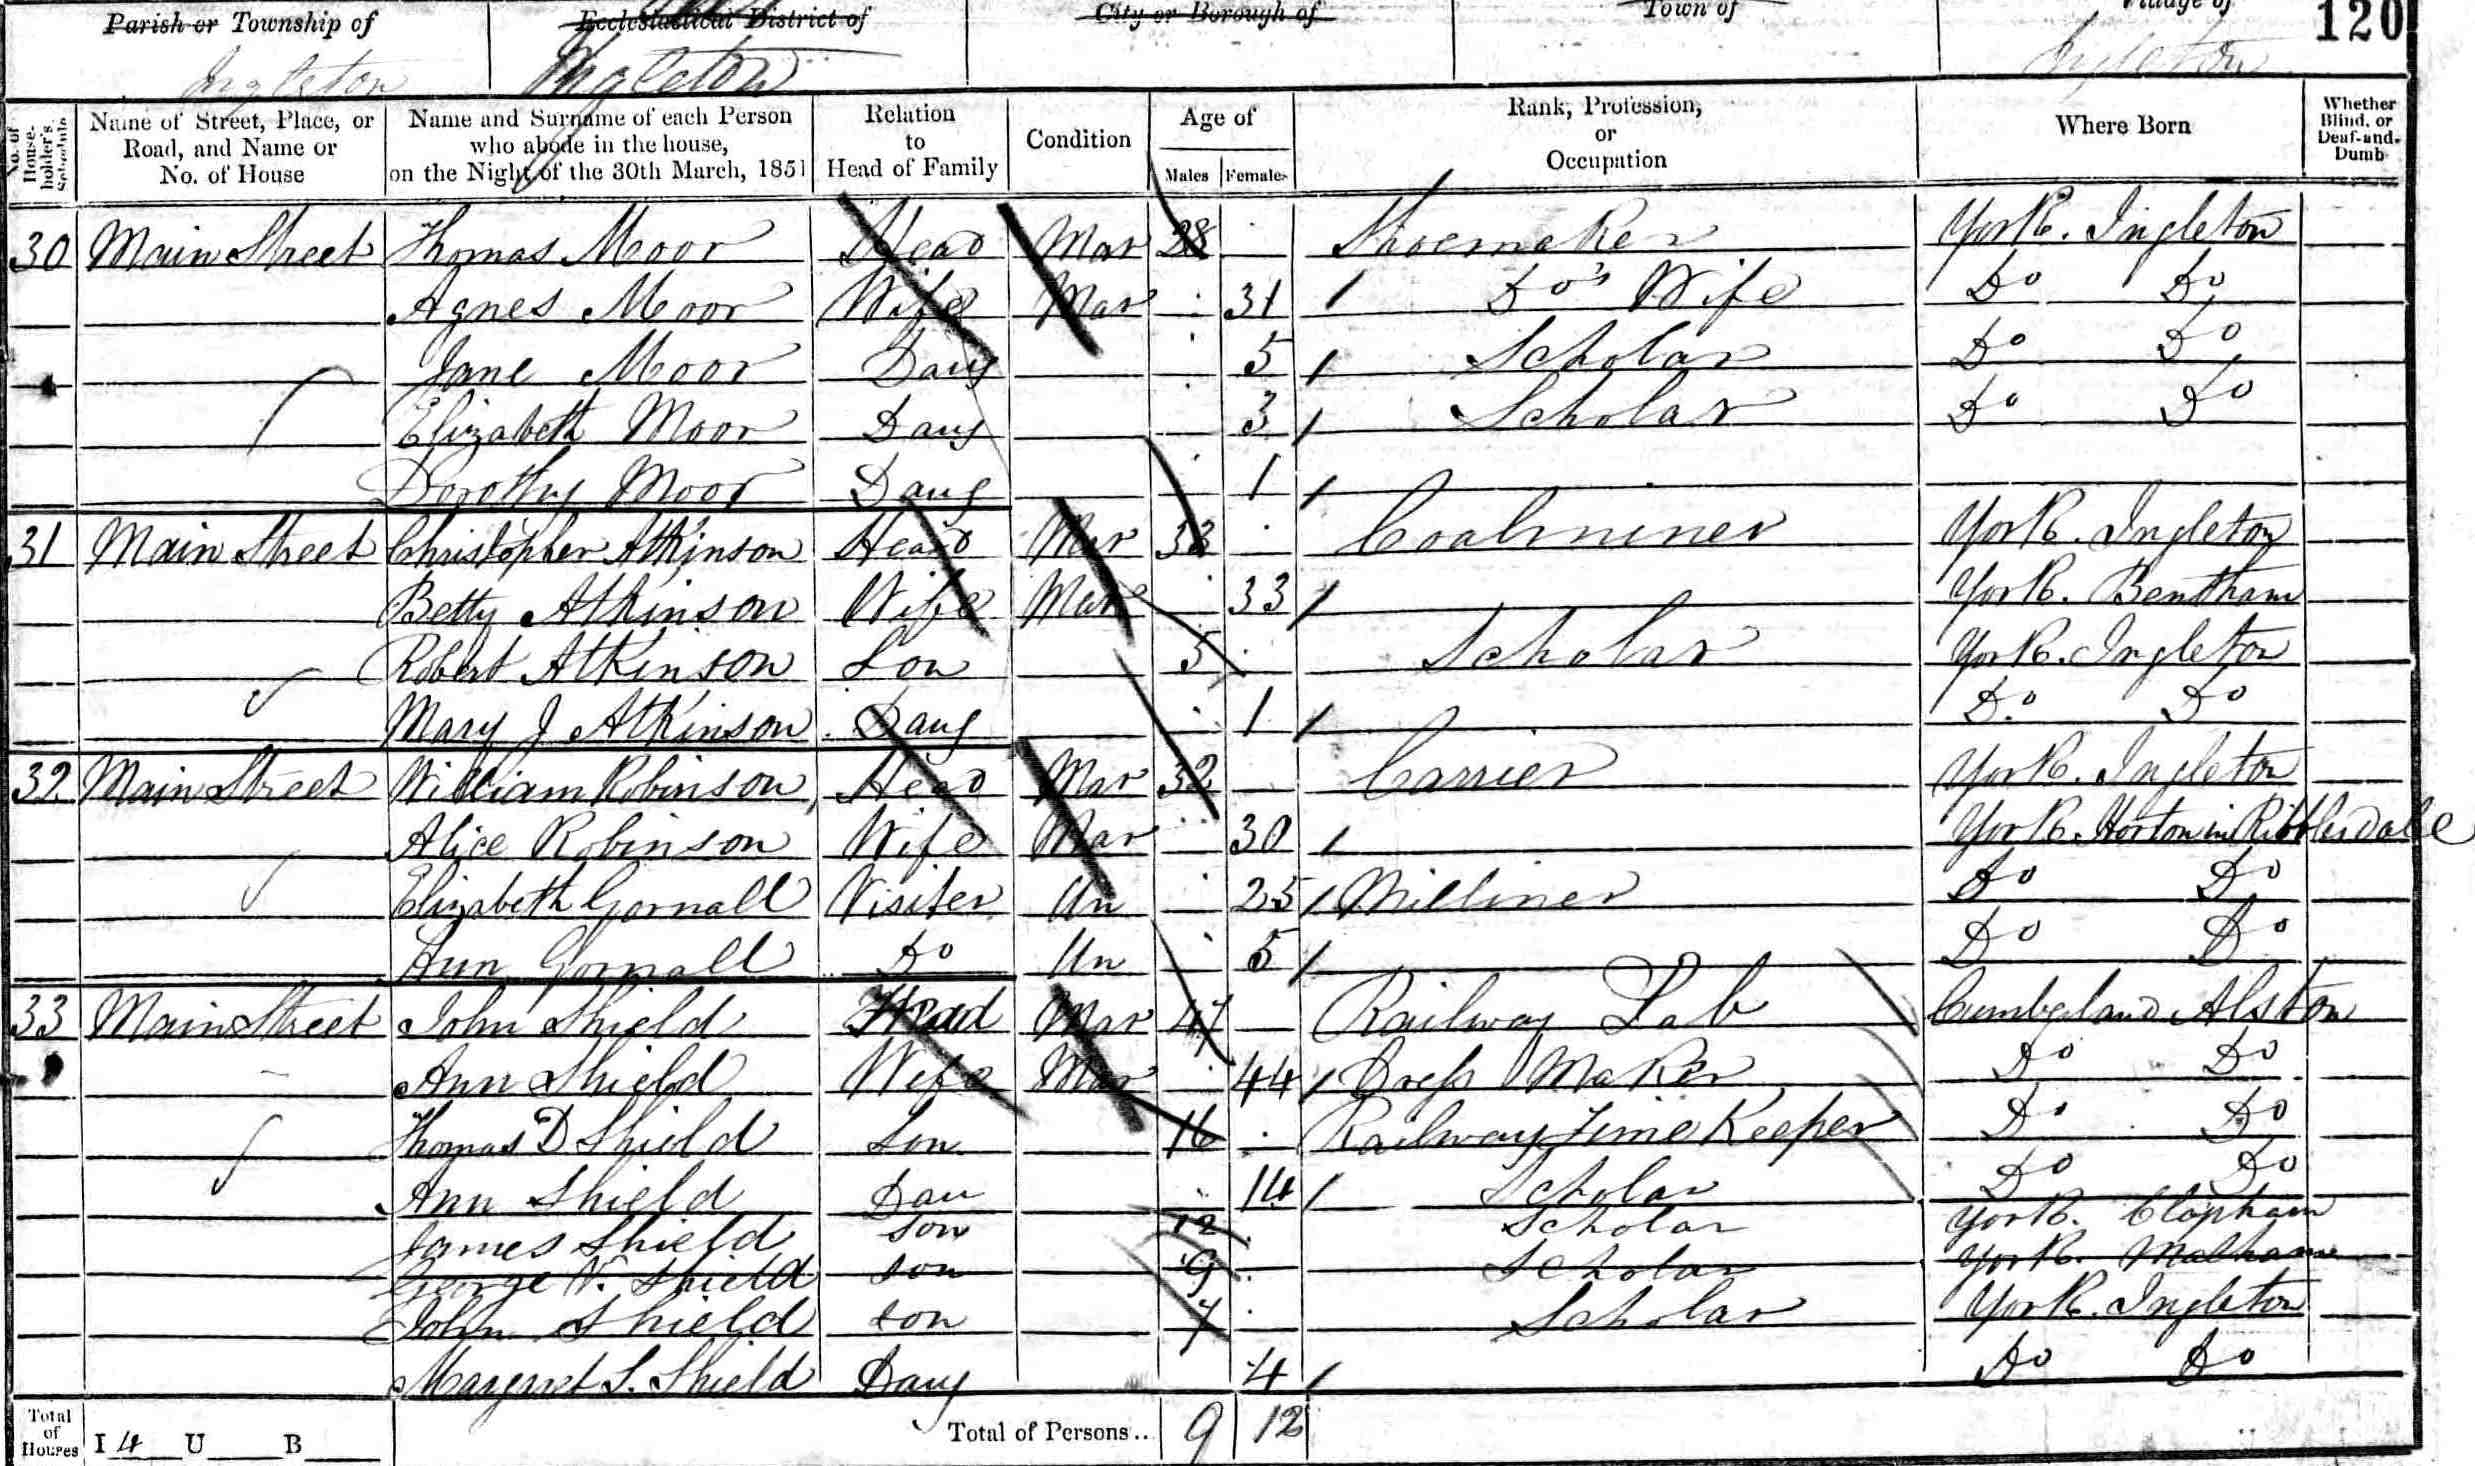 Parish or Township of Ecclesiastical District of City or Borough of Town of Village of 120
Ingleton Ingleton Ingleton
No. of House-holder's Schedule Name of Street, Place, or Road, and Name or No. of House Name and Surname of each Person who abode in the house, on the Night of the 30th March, 1851 Relation to Head of Family Condition Age of Males Females Rank, Profession, or Occupation Where Born Whether Blind, or Deaf-and-Dumb
30 Main Street Thomas Moor Head Mar 28 Shoemaker York. Ingleton
Agnes Moor Wife Mar 31 Do's Wife Do Do
Jane Moor Daug 5 Scholar Do Do
Elizabeth Moor Daug 3 Scholar Do Do
Dorothy Moor Daug 1
31 Main Street Christopher Atkinson Head Mar 33 Coalminer York. Ingleton
Betty Atkinson Wife Mar 33 York. Bentham
Robert Atkinson Son 5 Scholar York. Ingleton
Mary J Atkinson Daug 1 Do Do
32 Main Street William Robinson Head Mar 32 Carrier York. Ingleton
Alice Robinson Wife Mar 30 York. Horton in Ribblesdale
Elizabeth Gornall Visiter Un 25 Milliner Do Do
Ann Gornall Do Un 5 Do Do
33 Main Street John Shield Head Mar 47 Railway Lab Cumberland Alston
Ann Shield Wife Mar 44 Dress Maker Do Do
Thomas D Shield Son 16 Railway Time Keeper Do Do
Ann Shield Dau 14 Scholar Do Do
James Shield Son 12 Scholar York. Clapham
George V. Shield Son 9 Scholar York. Malham
John Shield Son 7 Scholar York. Ingleton
Margret S. Shield Daug 4 Do Do
Total of Houses I 4 U B Total of Persons.. 9 12